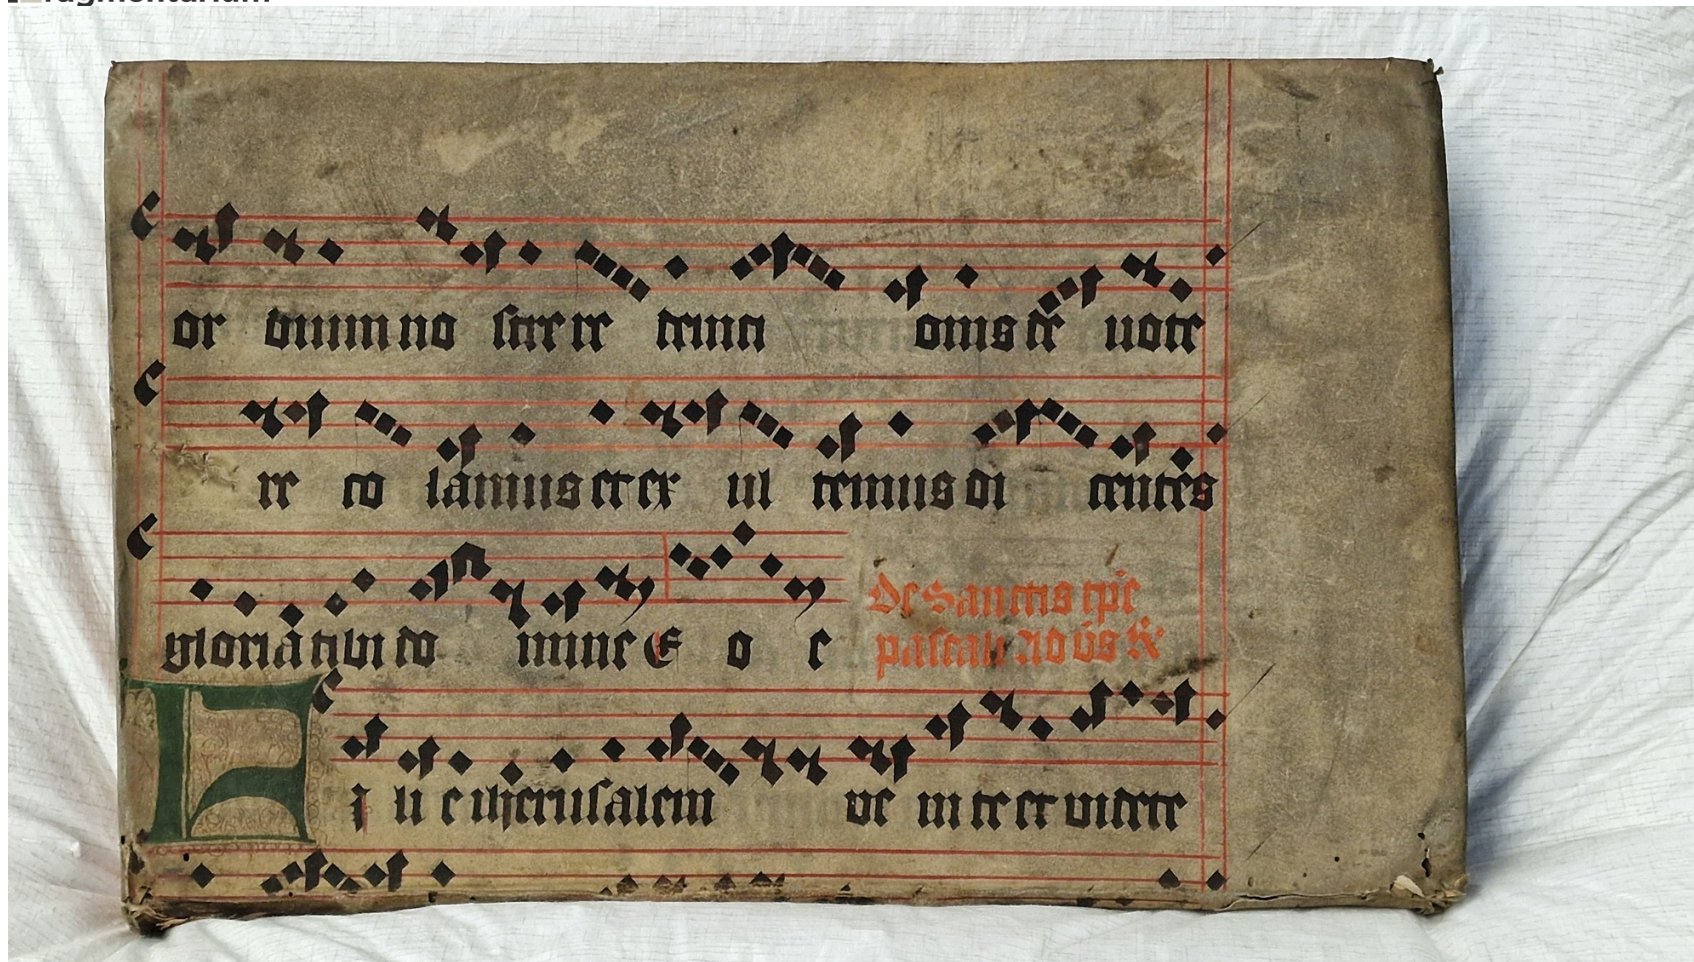 or dium no stre re demti onis de uote
re co lamus et ex ul temus di centes
gloria tibi do mine E o e
De Sanctis tpe
pascali Ad vs R
F i li e iherusalem ve ni te et videte